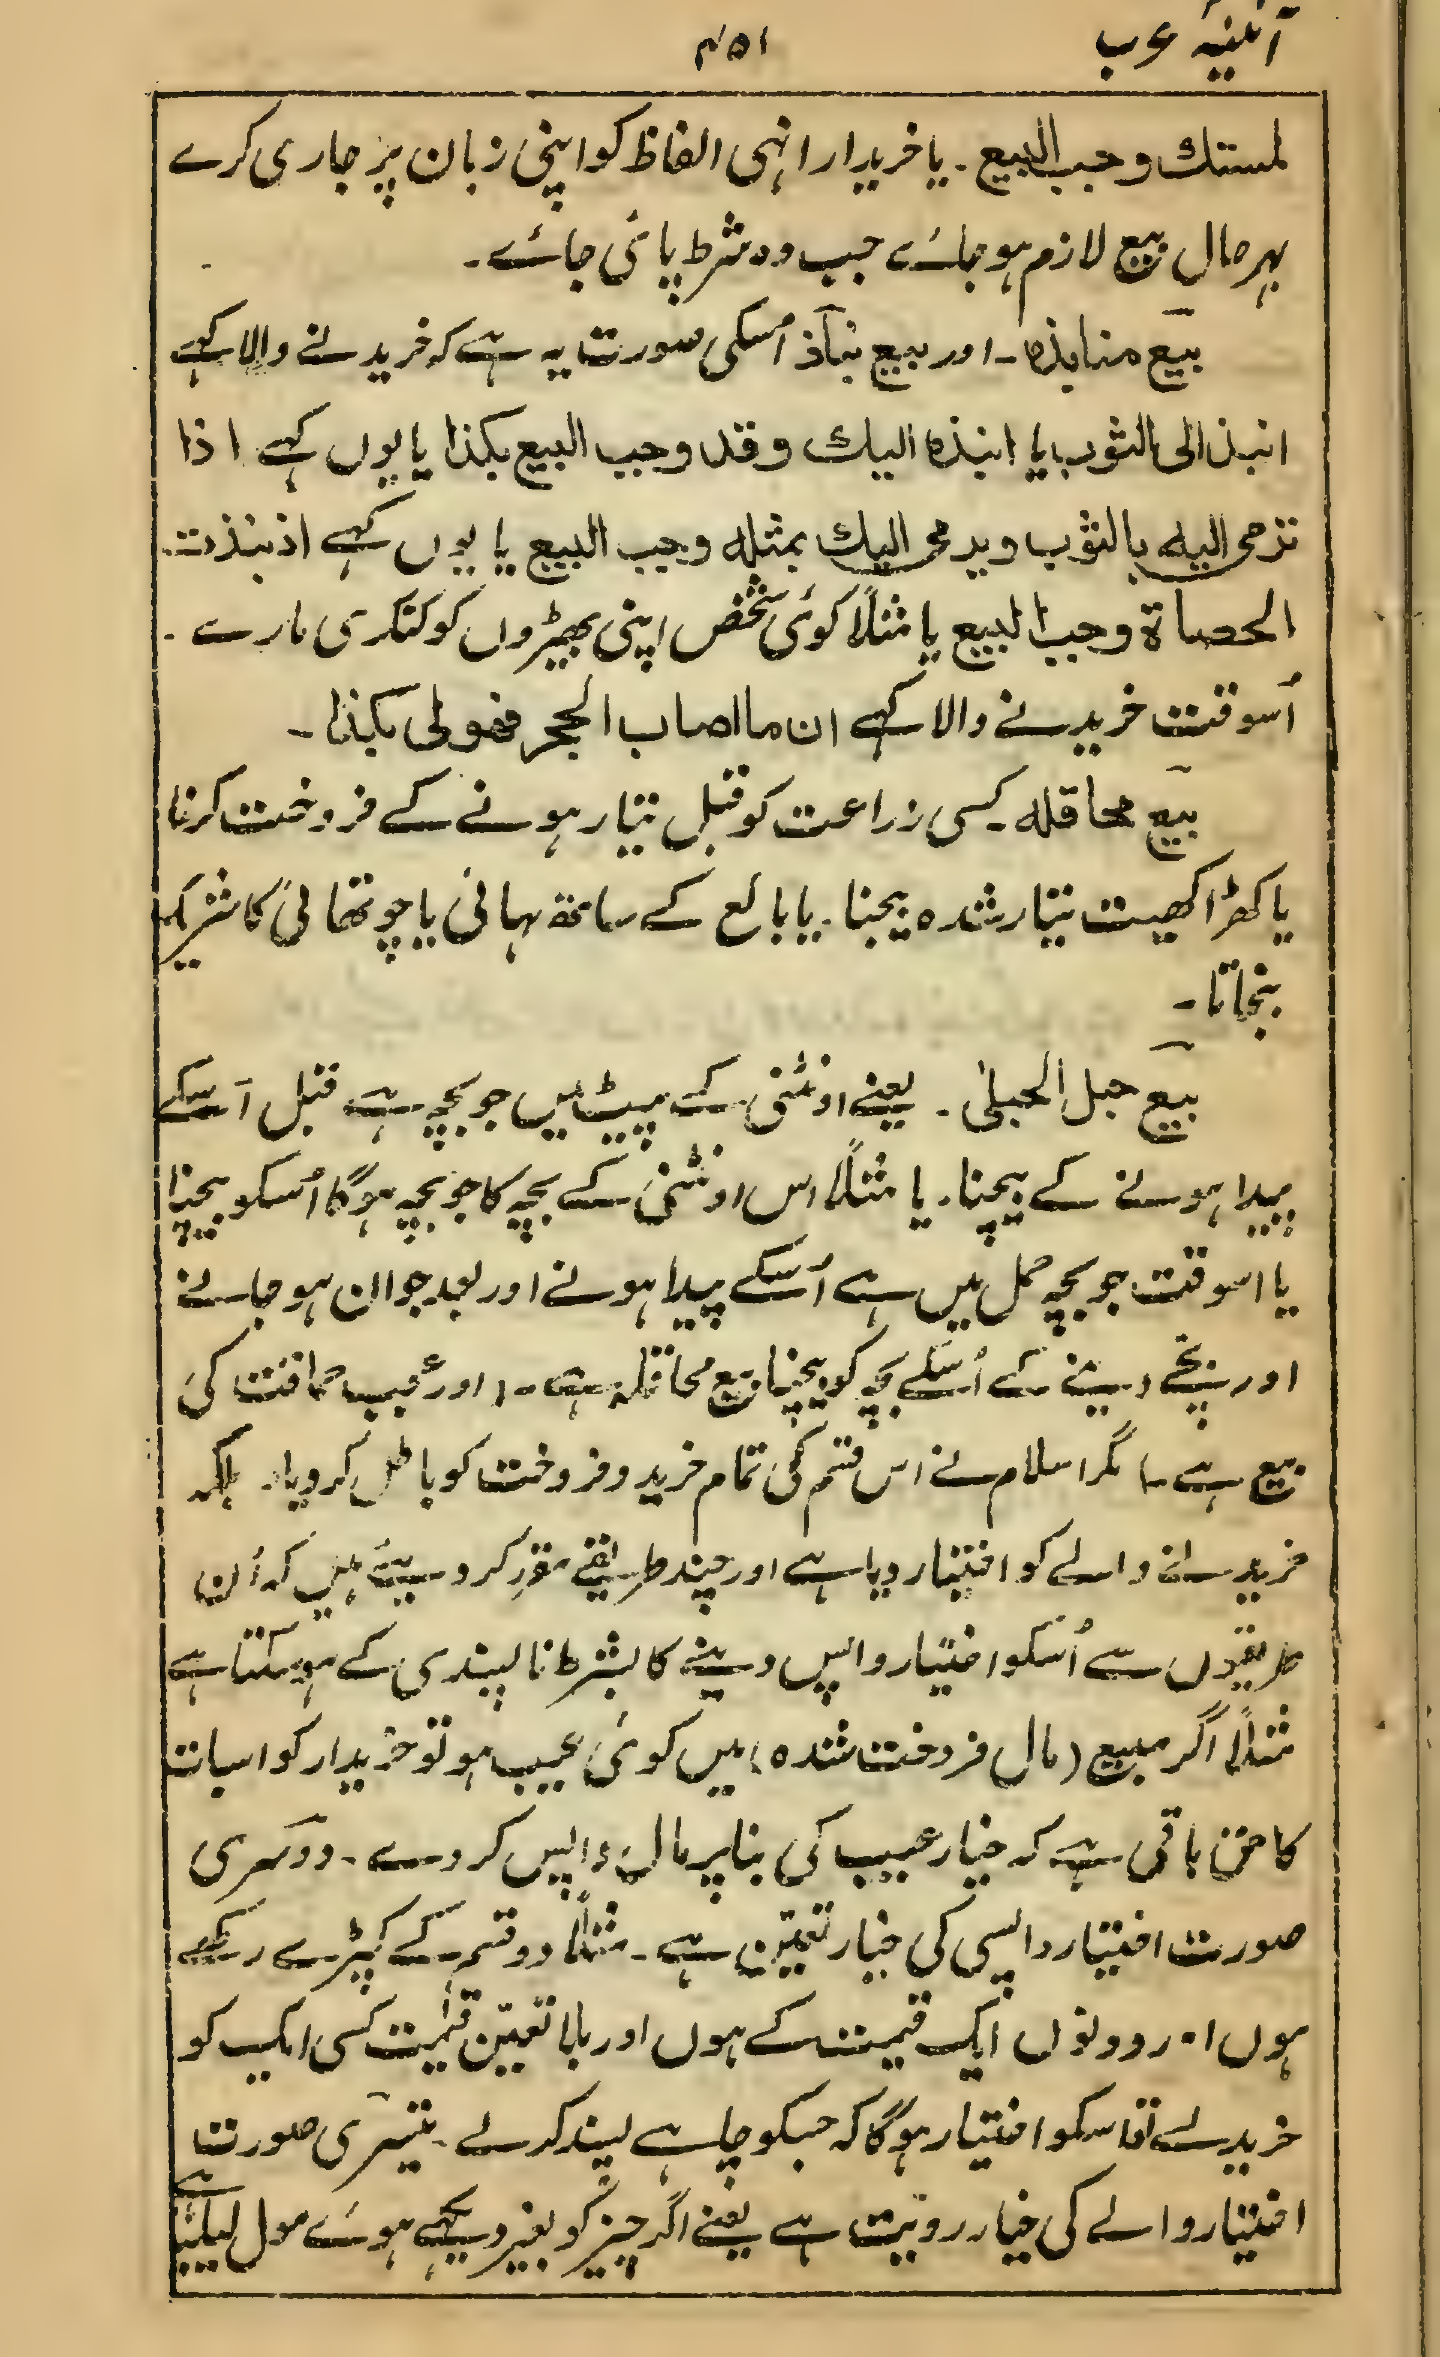 آئینۂ عرب
۴۵۱
لمستك وجب البیع ۔ یا خریدار انہی الفاظ کو اپنی زبان پر جاری کرے
بہرحال بیع لازم ہو جائے جب وہ شرط پائی جائے ۔
بیع منابذہ ۔ اور بیع نباذ اُسکی صورت یہ ہے کہ خریدنے والا کہے
انبذ الی الثوب یا انبذہ الیك وقد وجب البیع بکذا یا یوں کہے اذا
ترمی الیہ بالثوب ویرمی الیك بمثلہ وجب البیع یا یوں کہے اذ نبذت
الحصاة وجب البیع یا مثلاً کوئی شخص اپنی بھیڑوں کو کنکری مارے ۔
اُسوقت خریدنے والا کہے ان ما اصاب الحجر فھو لی بکذا ۔
بیع محاقلہ ۔ کسی زراعت کو قبل تیار ہونے کے فروخت کرنا
یا کھڑا کھیت تیار شدہ بیچنا ۔ یا بائع کے ساتھ تہائی یا چوتھائی کا شریک
بنجاتا ۔
بیع حبل الحبلیٰ ۔ یعنے اونٹنی کے پیٹ میں جو بچہ ہے قبل اسکے
پیدا ہونے کے بیچنا ۔ یا مثلاً اس اونٹنی کے بچہ کا جو بچہ ہوگا اُسکو بیچنا
یا اسوقت جو بچہ حمل میں ہے اُسکے پیدا ہونے اور بعد جوان ہو جانے
اور بچے دینے کے اُسکے بچہ کو بیچنا بیع محاقلہ ہے ۔ اور عجیب حماقت کی
بیع ہے ۔ مگر اسلام نے اس قسم کی تمام خرید و فروخت کو باطل کر دیا ۔ بلکہ
خریدنے والے کو اختیار دیا ہے اور چند طریقے مقرر کر دیئے ہیں کہ اُن
طریقوں سے اُسکو اختیار واپس دینے کا بشرط ناپسندی کے ہو سکتا ہے
مثلاً اگر مبیع (مال فروخت شدہ) میں کوئی عیب ہو تو خریدار کو اسبات
کا حق باقی ہے کہ خیار عیب کی بنا پر مال واپس کر دے ۔ دوسری
صورت اختیار واپسی کی خیار تعیّن ہے ۔ مثلاً دو قسم کے کپڑے رکھے
ہوں اور دونوں ایک قیمت کے ہوں اور بلا تعیّن قیمت کسی ایک کو
خریدے تو اسکو اختیار ہوگا کہ جسکو چاہے پسند کرلے ۔ تیسری صورت
اختیار والے کی خیار رویت ہے یعنے اگر چیز کو بغیر دیکھے ہوئے مول لیلیا ہے